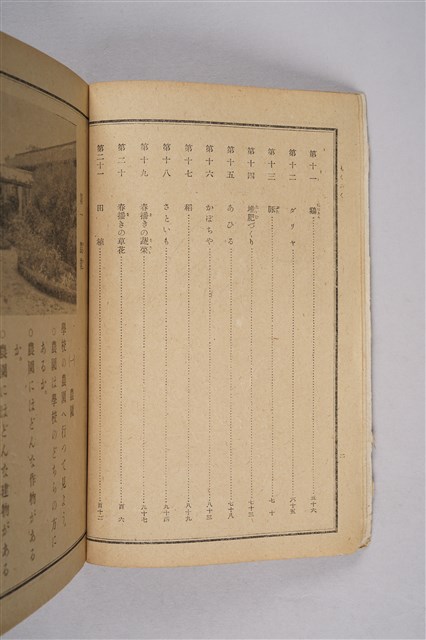 もくろく
二
第十一
第十二　ダリヤ
第十三
第十四　堆肥づくり
第十五　あひる
第十六　かぼちや　八十三
第十七　稻　八十九
第十八　さといも　九十四
第十九　春播きの蔬菜　九十七
第二十　春播きの草花　百六
第二十一　田植　百十二
第一　農園
(一)農園
學校の農園へ行つて見よう。
○農園は學校のどちらの方に
あるか。
○農園にはどんな作物がある
か。
○農園にはどんな建物がある